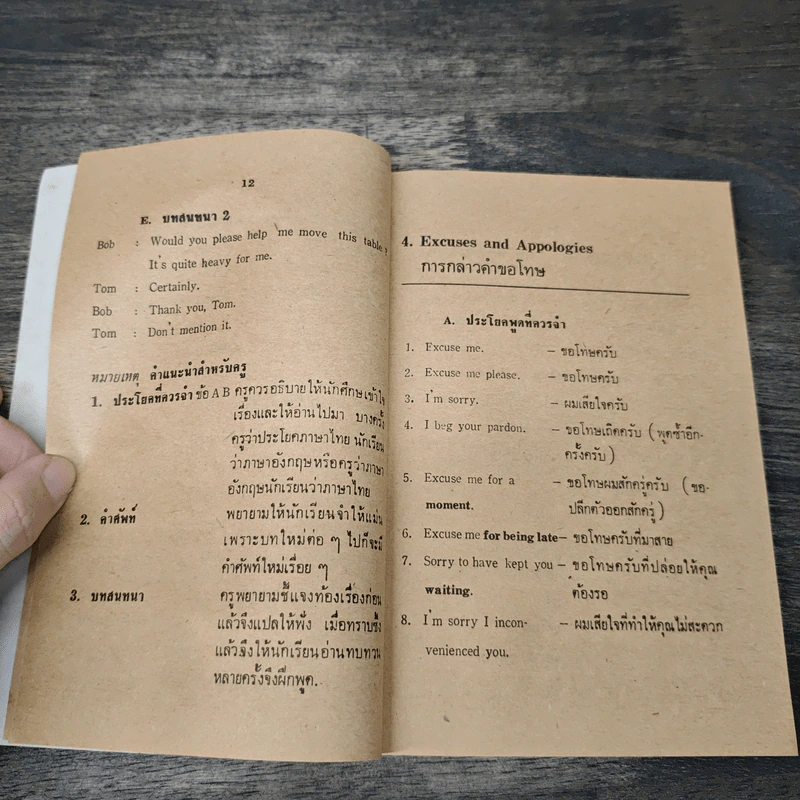 12
E. บทสนทนา 2
Bob : Would you please help me move this table ?
It's quite heavy for me.
Tom : Certainly.
Bob : Thank you, Tom.
Tom : Don't mention it.
หมายเหตุ คำแนะนำสำหรับครู
1. ประโยคที่ควรจำ ข้อ A B ครูควรอธิบายให้นักศึกษเข้าใจ
เรื่องและให้อ่านไปมา บางครั้ง
ครูว่าประโยคภาษาไทย นักเรียน
ว่าภาษาอังกฤษหรือครูว่าภาษา
อังกฤษนักเรียนว่าภาษาไทย
2. คำศัพท์ พยายามให้นักเรียนจำให้แม่น
เพราะบทใหม่ต่อ ๆ ไปก็จะมี
คำศัพท์ใหม่เรื่อย ๆ
3. บทสนทนา ครูพยายามชี้แจงท้องเรื่องก่อน
แล้วจึงแปลให้ฟัง เมื่อทราบซึ้ง
แล้วจึงให้นักเรียนอ่านทบทวน
หลายครั้งจึงฝึกพูด.
4. Excuses and Appologies
การกล่าวคำขอโทษ
A. ประโยคพูดที่ควรจำ
1. Excuse me. – ขอโทษครับ
2. Excuse me please. – ขอโทษครับ
3. I'm sorry. – ผมเสียใจครับ
4. I beg your pardon. – ขอโทษเถิดครับ (พูดซ้ำอีก-
ครั้งครับ)
5. Excuse me for a – ขอโทษผมสักครู่ครับ (ขอ-
moment. ปลีกตัวออกสักครู่)
6. Excuse me for being late – ขอโทษครับที่มาสาย
7. Sorry to have kept you – ขอโทษครับที่ปล่อยให้คุณ
waiting. ต้องรอ
8. I'm sorry I incon- – ผมเสียใจที่ทำให้คุณไม่สะดวก
venienced you.